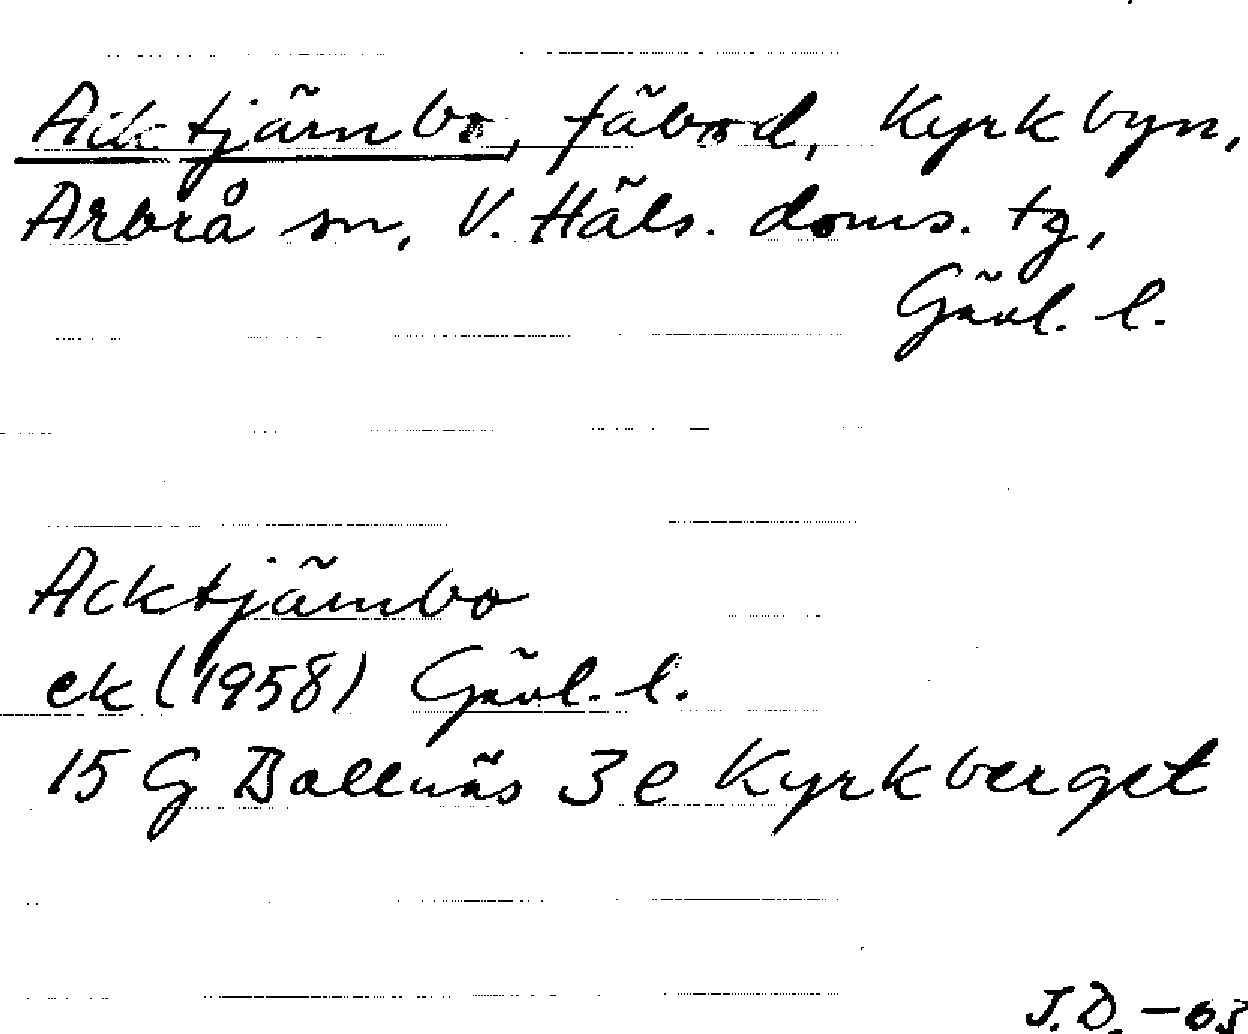 Acktjärnbo, fäbod, Kyrkbyn,
Arbrå sn, V. Häls. doms. tg,
Gävl. l.
Acktjärnbo
ek (1958) Gävl. l.
15 G Bollnäs 3 e Kyrkberget
J.D. -63